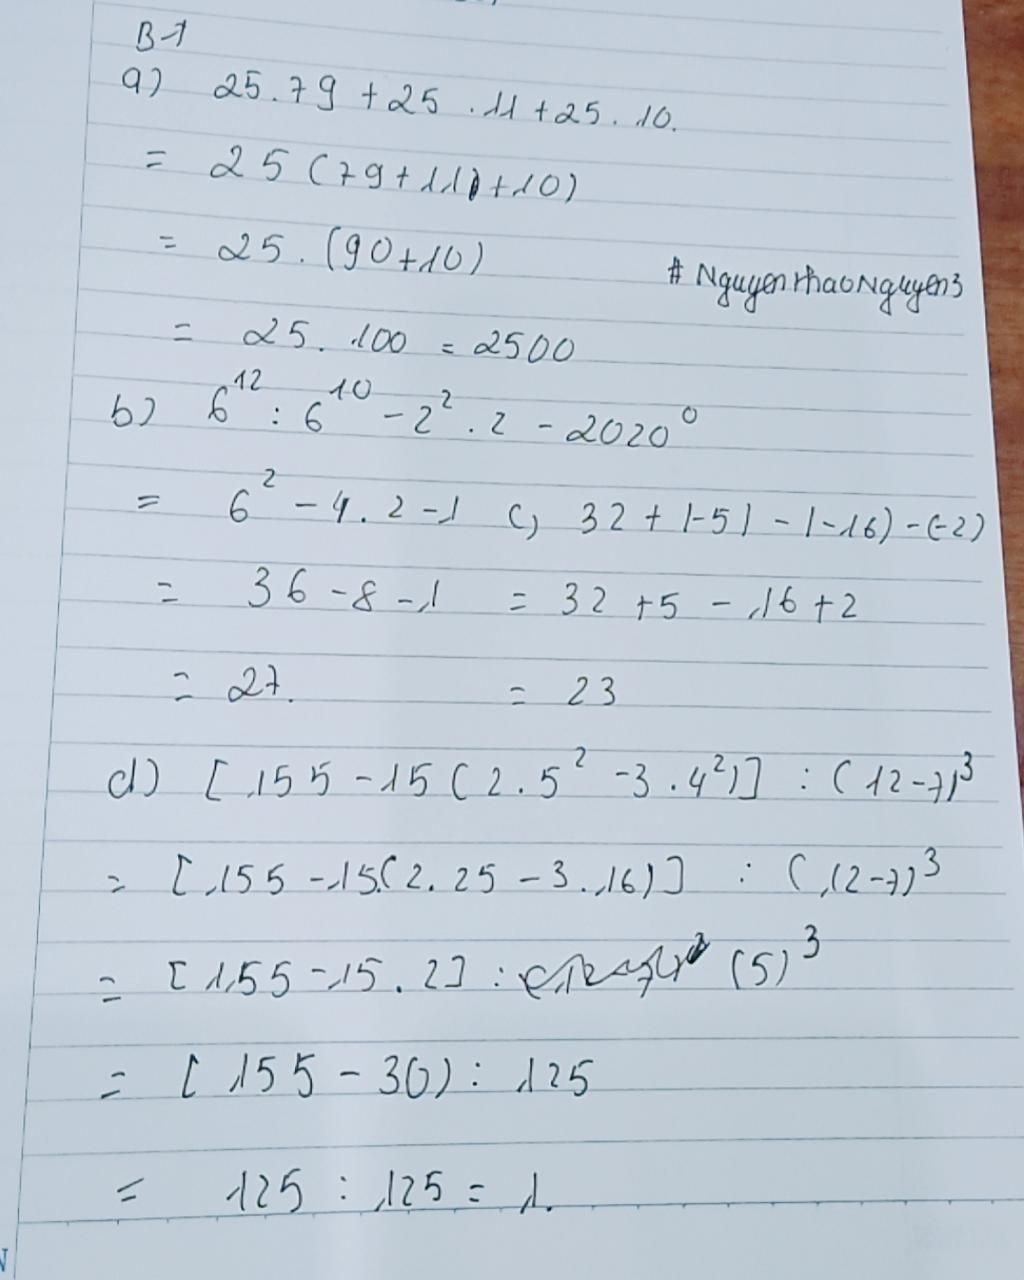 B-1
a) 25.79 + 25.11 + 25.10.
= 25 (79 + 11 + 10)
= 25. (90 + 10)
# NguyenthaoNguyen3
= 25. 100 = 2500
b) 6¹² : 6¹⁰ - 2² . 2 - 2020⁰
= 6² - 4. 2 - 1
= 36 - 8 - 1
= 27.
c, 32 + |-5| - |-16) - (-2)
= 32 + 5 - 16 + 2
= 23
d) [155 - 15 (2. 5² - 3. 4²)] : (12-7)³
= [155 - 15.(2. 25 - 3. 16)] : (12-7)³
= [155 - 15. 2] : (5)³
= [155 - 30) : 125
= 125 : 125 = 1.